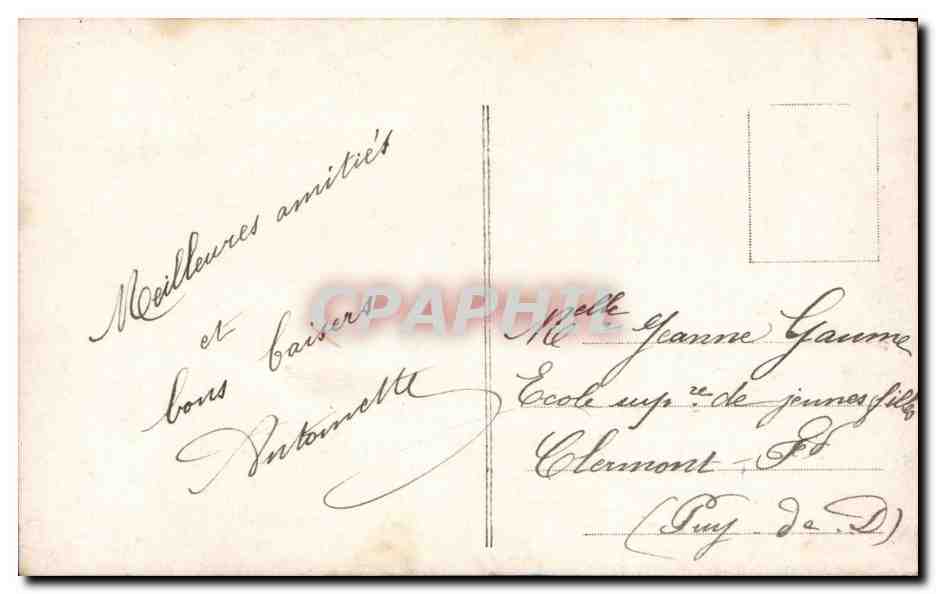 Meilleures amitiés
et
bons baisers
Antoinette
CPAPHIL
Melle Jeanne Gaume
Ecole supre de jeunes filles
Clermont-Fd
(Puy-de-D)